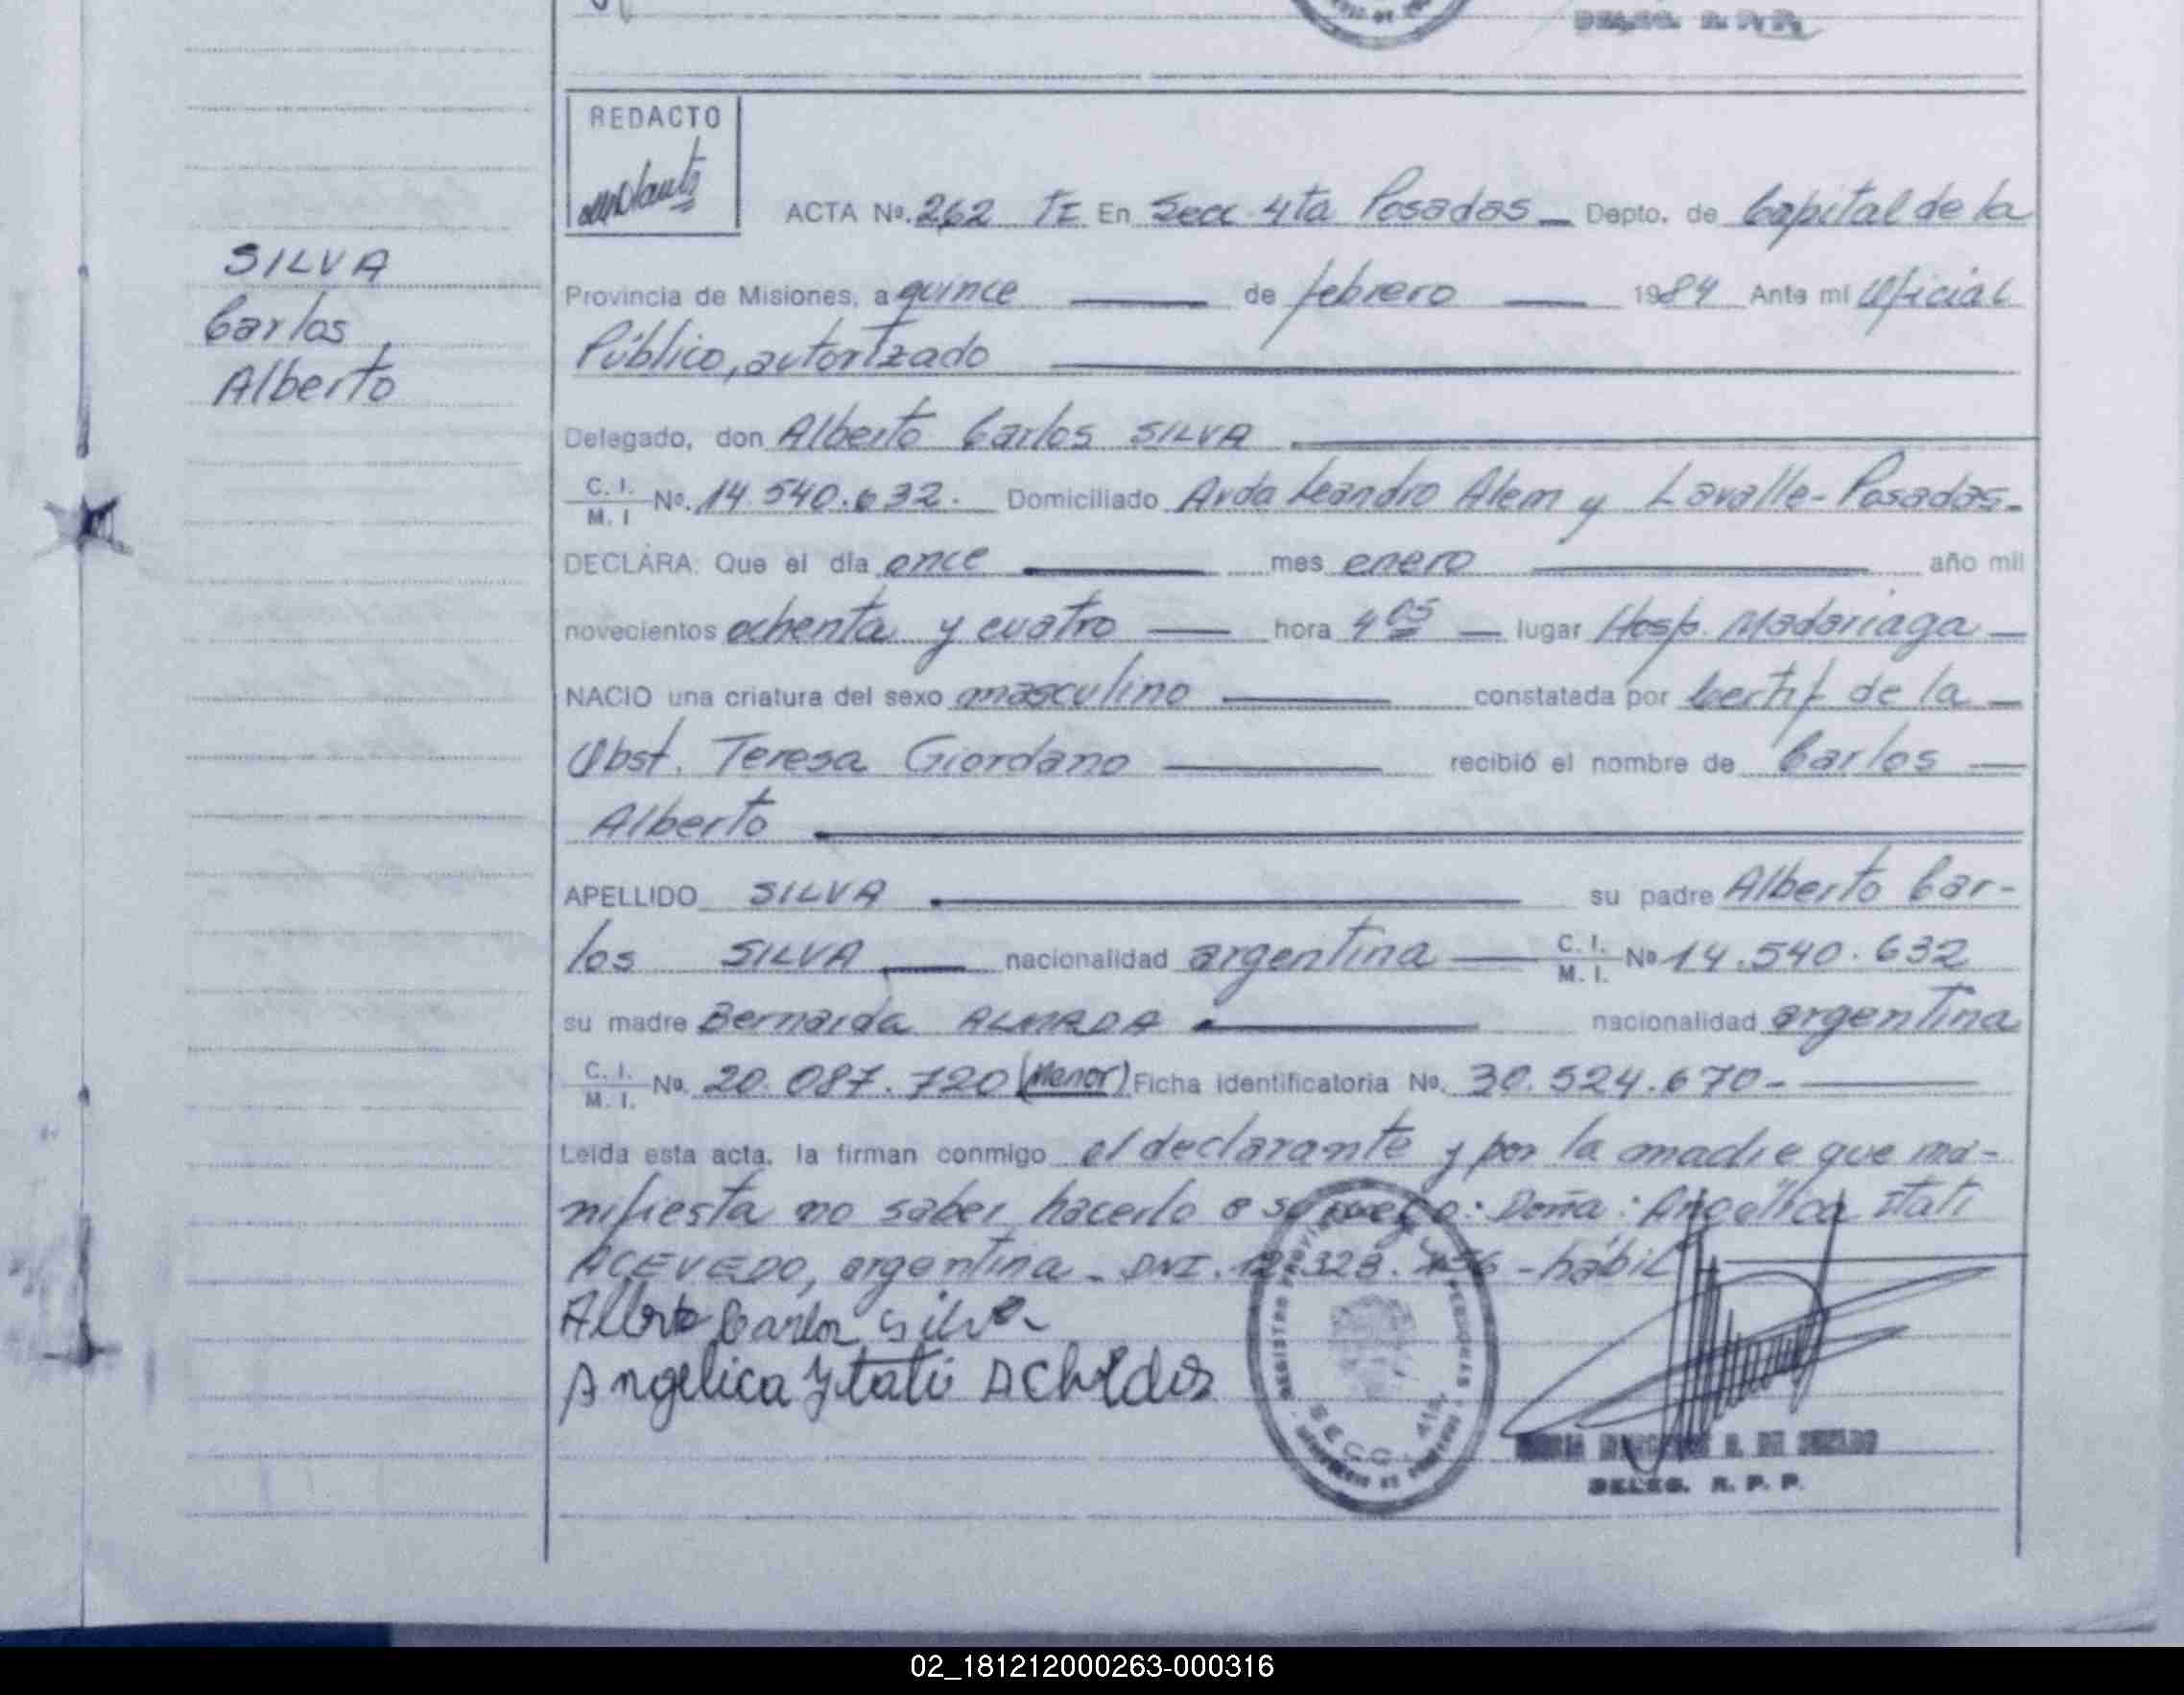 DELEG. R. P. P.
REDACTO
ACTA Nº. 262 TE En Secc 4ta Posadas Depto. de Capital de la
SILVA
Carlos
Alberto
Provincia de Misiones, a quince de febrero 1984 Ante mi Oficial
Público, autorizado
Delegado, don Alberto Carlos SILVA
C. I. M. I Nº. 14.540.632. Domiciliado Avda Leandro Alem y Lavalle - Posadas.
DECLARA: Que el día once mes enero año mil
novecientos ochenta y cuatro hora 4 05 lugar Hosp. Madariaga
NACIO una criatura del sexo masculino constatada por Certif de la
Obst. Teresa Giordano recibió el nombre de Carlos
Alberto
APELLIDO SILVA su padre Alberto Car-
los SILVA nacionalidad argentina C. I. M. I. Nº 14.540.632
su madre Bernarda ALMADA nacionalidad argentina
C. I. M. I. Nº. 20.087.720 (Menor) Ficha identificatoria Nº. 30.524.670-
Leída esta acta, la firman conmigo el declarante y por la madre que ma-
nifiesta no saber hacerlo a su ruego: Doña: Angélica Itatí
ACEVEDO, argentina - DNI. - hábil
Alberto Carlos Silva
Angelica Ytati
SECC. 4ta.
DELEG. R. P. P.
02_181212000263-000316